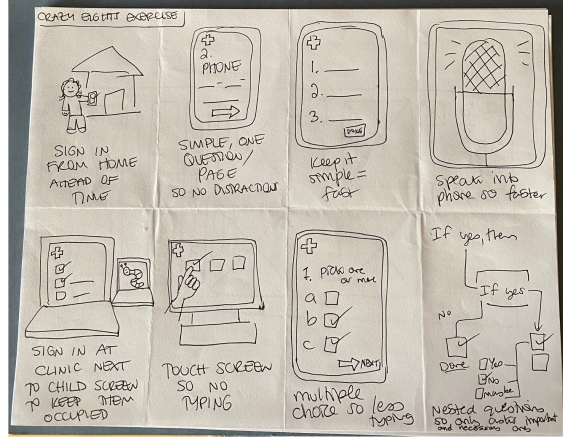 CRAZY EIGHTS EXERCISE
SIGN IN
FROM HOME
AHEAD OF
TIME
2.
PHONE
SIMPLE, ONE
QUESTION/
PAGE
SO NO DISTRACTIONS
1.
2.
3.
DONE
Keep it
simple =
fast
Speak into
phone so faster
SIGN IN AT
CLINIC NEXT
TO CHILD SCREEN
TO KEEP THEM
OCCUPIED
TOUCH SCREEN
SO NO
TYPING
1. pick one
or more
a
b
c
NEXT
multiple
choice so less
typing
If yes, then
If yes
NO
Done
Yes
No
maybe
Nested questions
so only asks important
and necessary ones